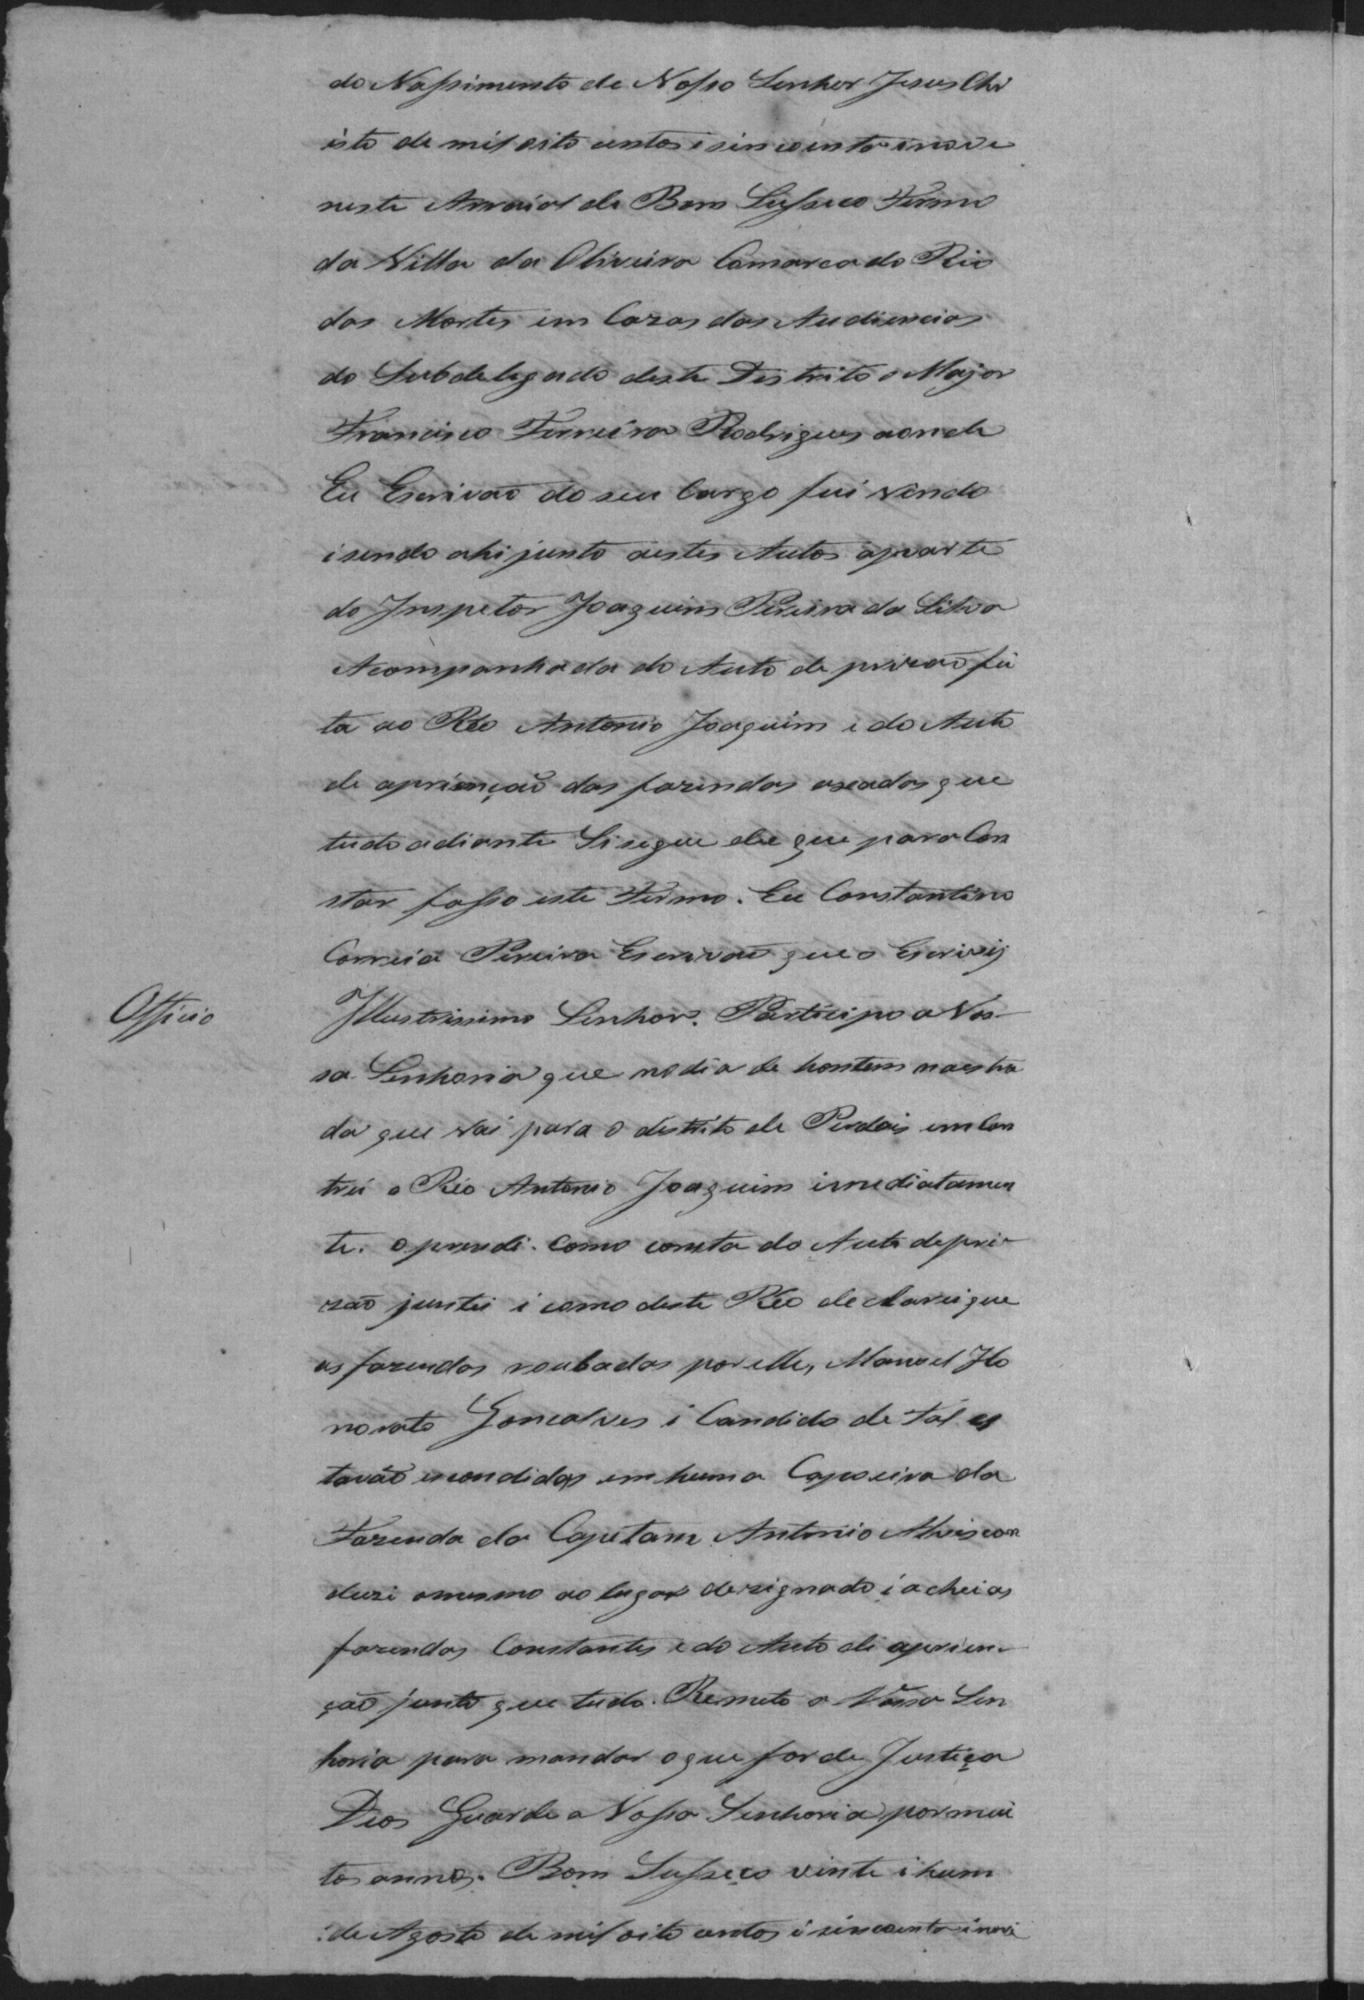 do Nassimento de Nosso Senhor Jesus Chr
isto de mil oito centos i sincoenta i nove
neste Arraial de Bom Susseco Termo
da Villa da Oliveira Comarca do Rio
das Mortes em Cazas das Audiencias
do Subdelegado deste Destrito o Major
Francisco Ferreira Rodrigues aonde
Eu Escrivaõ do seu Cargo fui vindo
i sendo ahi junto aestes Autos aparte
do Inspetor Joaquim Pereira da Silva
Acompanhada do Auto de prizaõ fei
ta ao Réo Antonio Joaquim i do Auto
de apriençaõ das fazendas axadas que
tudo adiante Sisegue do que para Con
star fasso este Termo. Eu Constantino
Correia Pereira Escrivaõ que o Escrivij
Officio
Illustrissimo Senhor. Participo a Vos-
sa Senhoria que no dia de hontem na estra
da que vai para o distrito de Perdois emcon
trei o Réo Antonio Joaquim imediatamen
te. o prendi. como consta do Auto de pri-
zaõ juntei i como deste Réo declarei que
as fazendas roubadas por elle, Manoel Ho
norato Gonçalves i Candido de Tal es
tavaõ escondidas em huma Capoeira da
Fazenda do Capitam Antonio Alvis con
duzi omesmo ao lugar designado i achei as
fazendas Constantes e do Auto de aprien-
çaõ junto que tudo. Remeto a Vossa Sen
horia para mandar o que for de Justiça
Deos Guarde a Vossa Senhoria por mui
tos annos. Bom Susseço vinte i hum
de Agosto de mil oito centos i sincoenta i nove